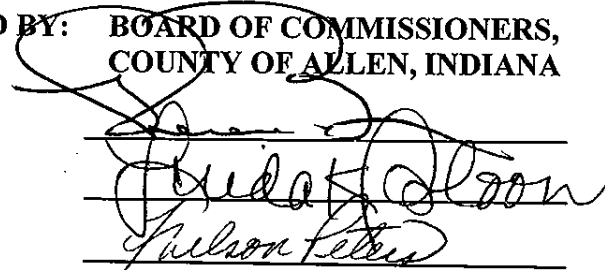 D BY: BOARD OF COMMISSIONERS,
COUNTY OF ALLEN, INDIANA
Linda K Bloom
Nelson Peters